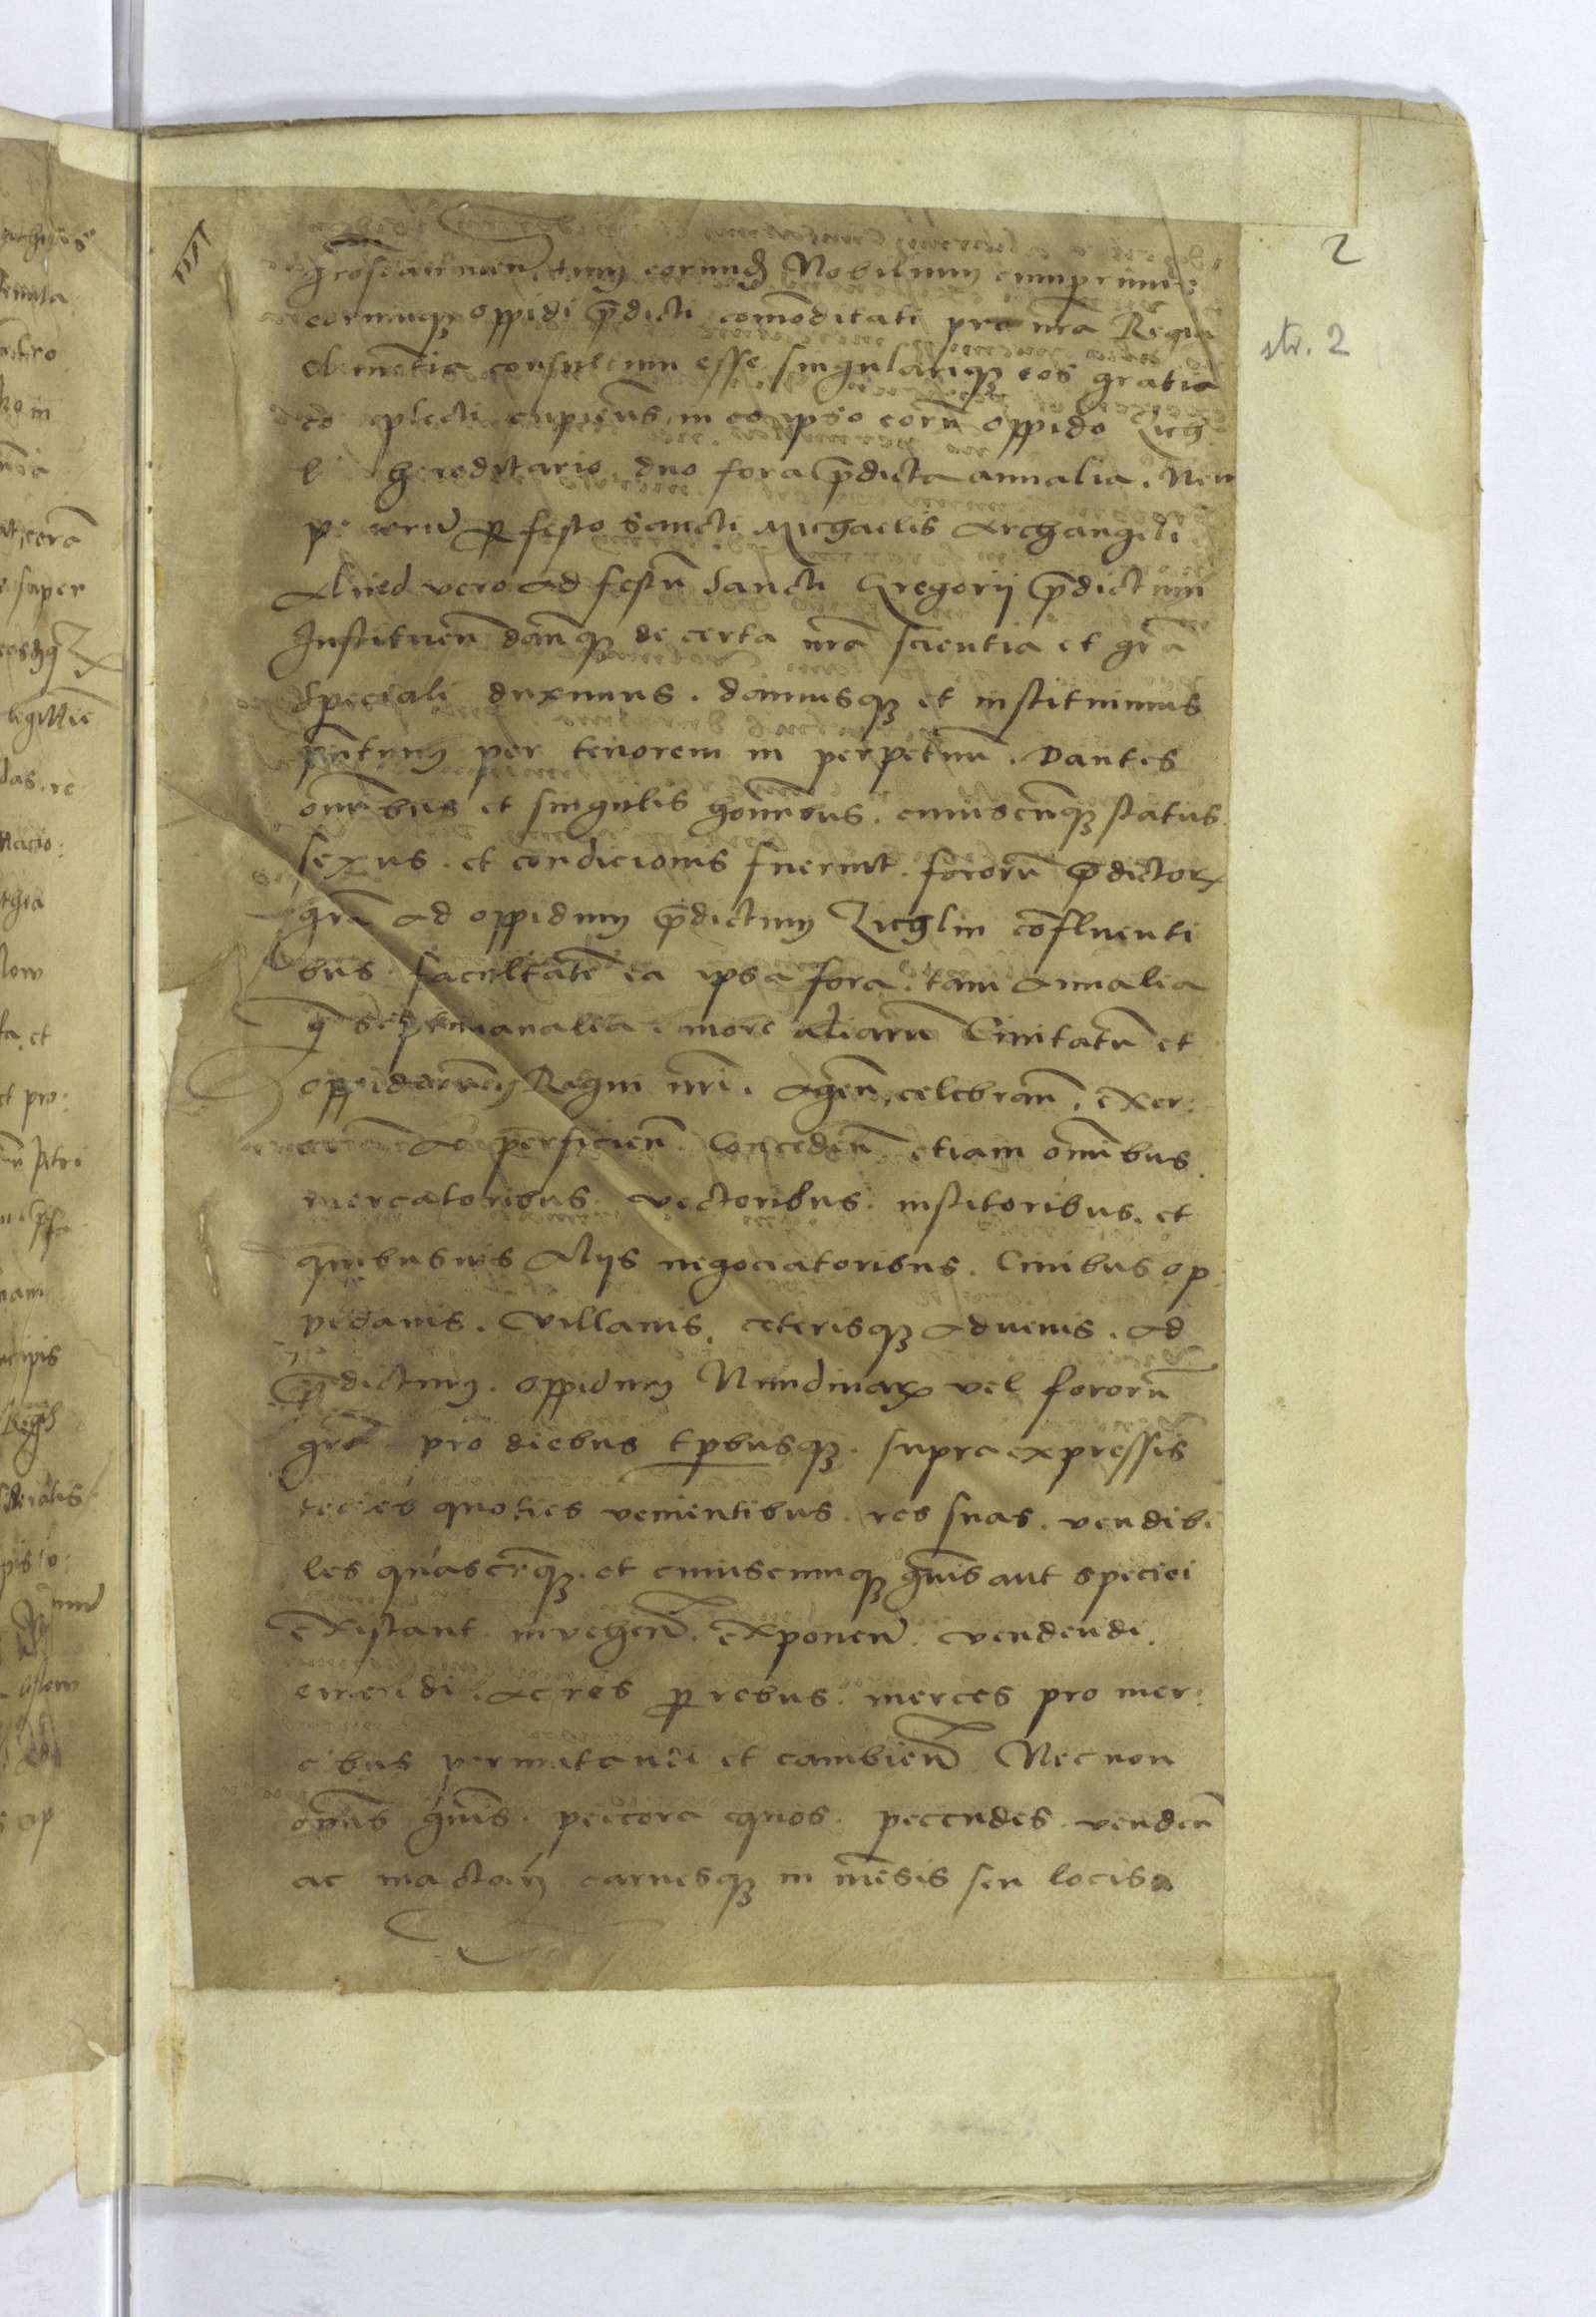 2
str. 2
tum eorund Nobilium cumprimis
eorumq oppidi p̄dicti com̄oditati pro nr̄a Regia
clementia consultum esse singulariq eos gratia
plecti cupientes in eo ipso eorū oppido Zich
hereditario duo fora p̄dicta annalia. Nem
pe p festo Sancti Michaelis Archangeli
Aliud vero ad festū Sancti Gregorij p̄dictum
Instituen̄ danq de certa nr̄a scientia et gr̄a
Speciali duximus. damusq et instituimus
pn̄tium per tenorem in perpetuū. Dantes
omībus et singulis hoīmībus. cuiuscunq status
sexus. et condicionis fuerint. fororū p̄dictor
gr̄a ad oppidum p̄dictum Zichlin cōfluenti
bus facultatē ea ipsa fora. tam Annalia
q̄ septimanalia. more aliarū Ciuitatū et
oppidorum Regni nr̄i. Agen̄, celebran̄. exer:
cen̄ ac perficien̄. Conceden̄ etiam omībus
mercatoribus. vectoribus. institoribus. et
quibusuis Alijs negociatoribus. Ciuibus op:
pidanis. Villanis. ceterisq Aduenis. ad
p̄dictum. oppidum Nundinar vel fororū
gr̄a pro diebus tp̄busq. supra expressis
tocies quoties venientibus. res suas. vendibi
les quascūq. et cuiuscunq gn̄is aut speciei
existant. inuehen̄. exponen̄. vendendi.
emendi. ac res p rebus. merces pro mer:
cibus permutandi et cambien̄ Nec non
om̄is gn̄is. peccora equos. peccudes. venden̄
ac mactan̄ carnesq in mēsis seu locis